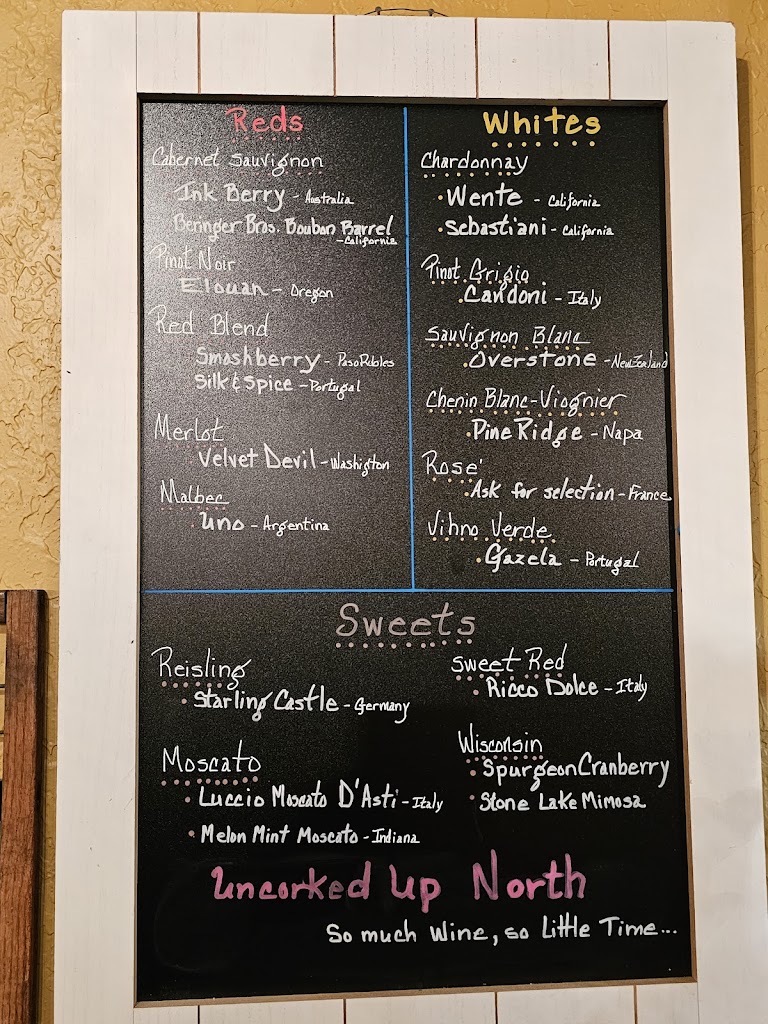 Reds
Cabernet Sauvignon
Ink Berry - Australia
Beringer Bros. Boubon Barrel
- California
Pinot Noir
Elouan - Oregon
Red Blend
Smashberry - Paso Robles
Silk & Spice - Portugal
Merlot
Velvet Devil - Washigton
Malbec
Uno - Argentina
Whites
Chardonnay
Wente - California
Sebastiani - California
Pinot Grigio
Candoni - Italy
Sauvignon Blanc
Overstone - New Zealand
Chenin Blanc - Viognier
Pine Ridge - Napa
Rose'
Ask for selection - France
Vihno Verde
Gazela - Portugal
Sweets
Reisling
Starling Castle - Germany
Moscato
Luccio Moscato D'Asti - Italy
Melon Mint Moscato - Indiana
Sweet Red
Ricco Dolce - Italy
Wisconsin
Spurgeon Cranberry
Stone Lake Mimosa
Uncorked Up North
So much Wine, so Little Time...